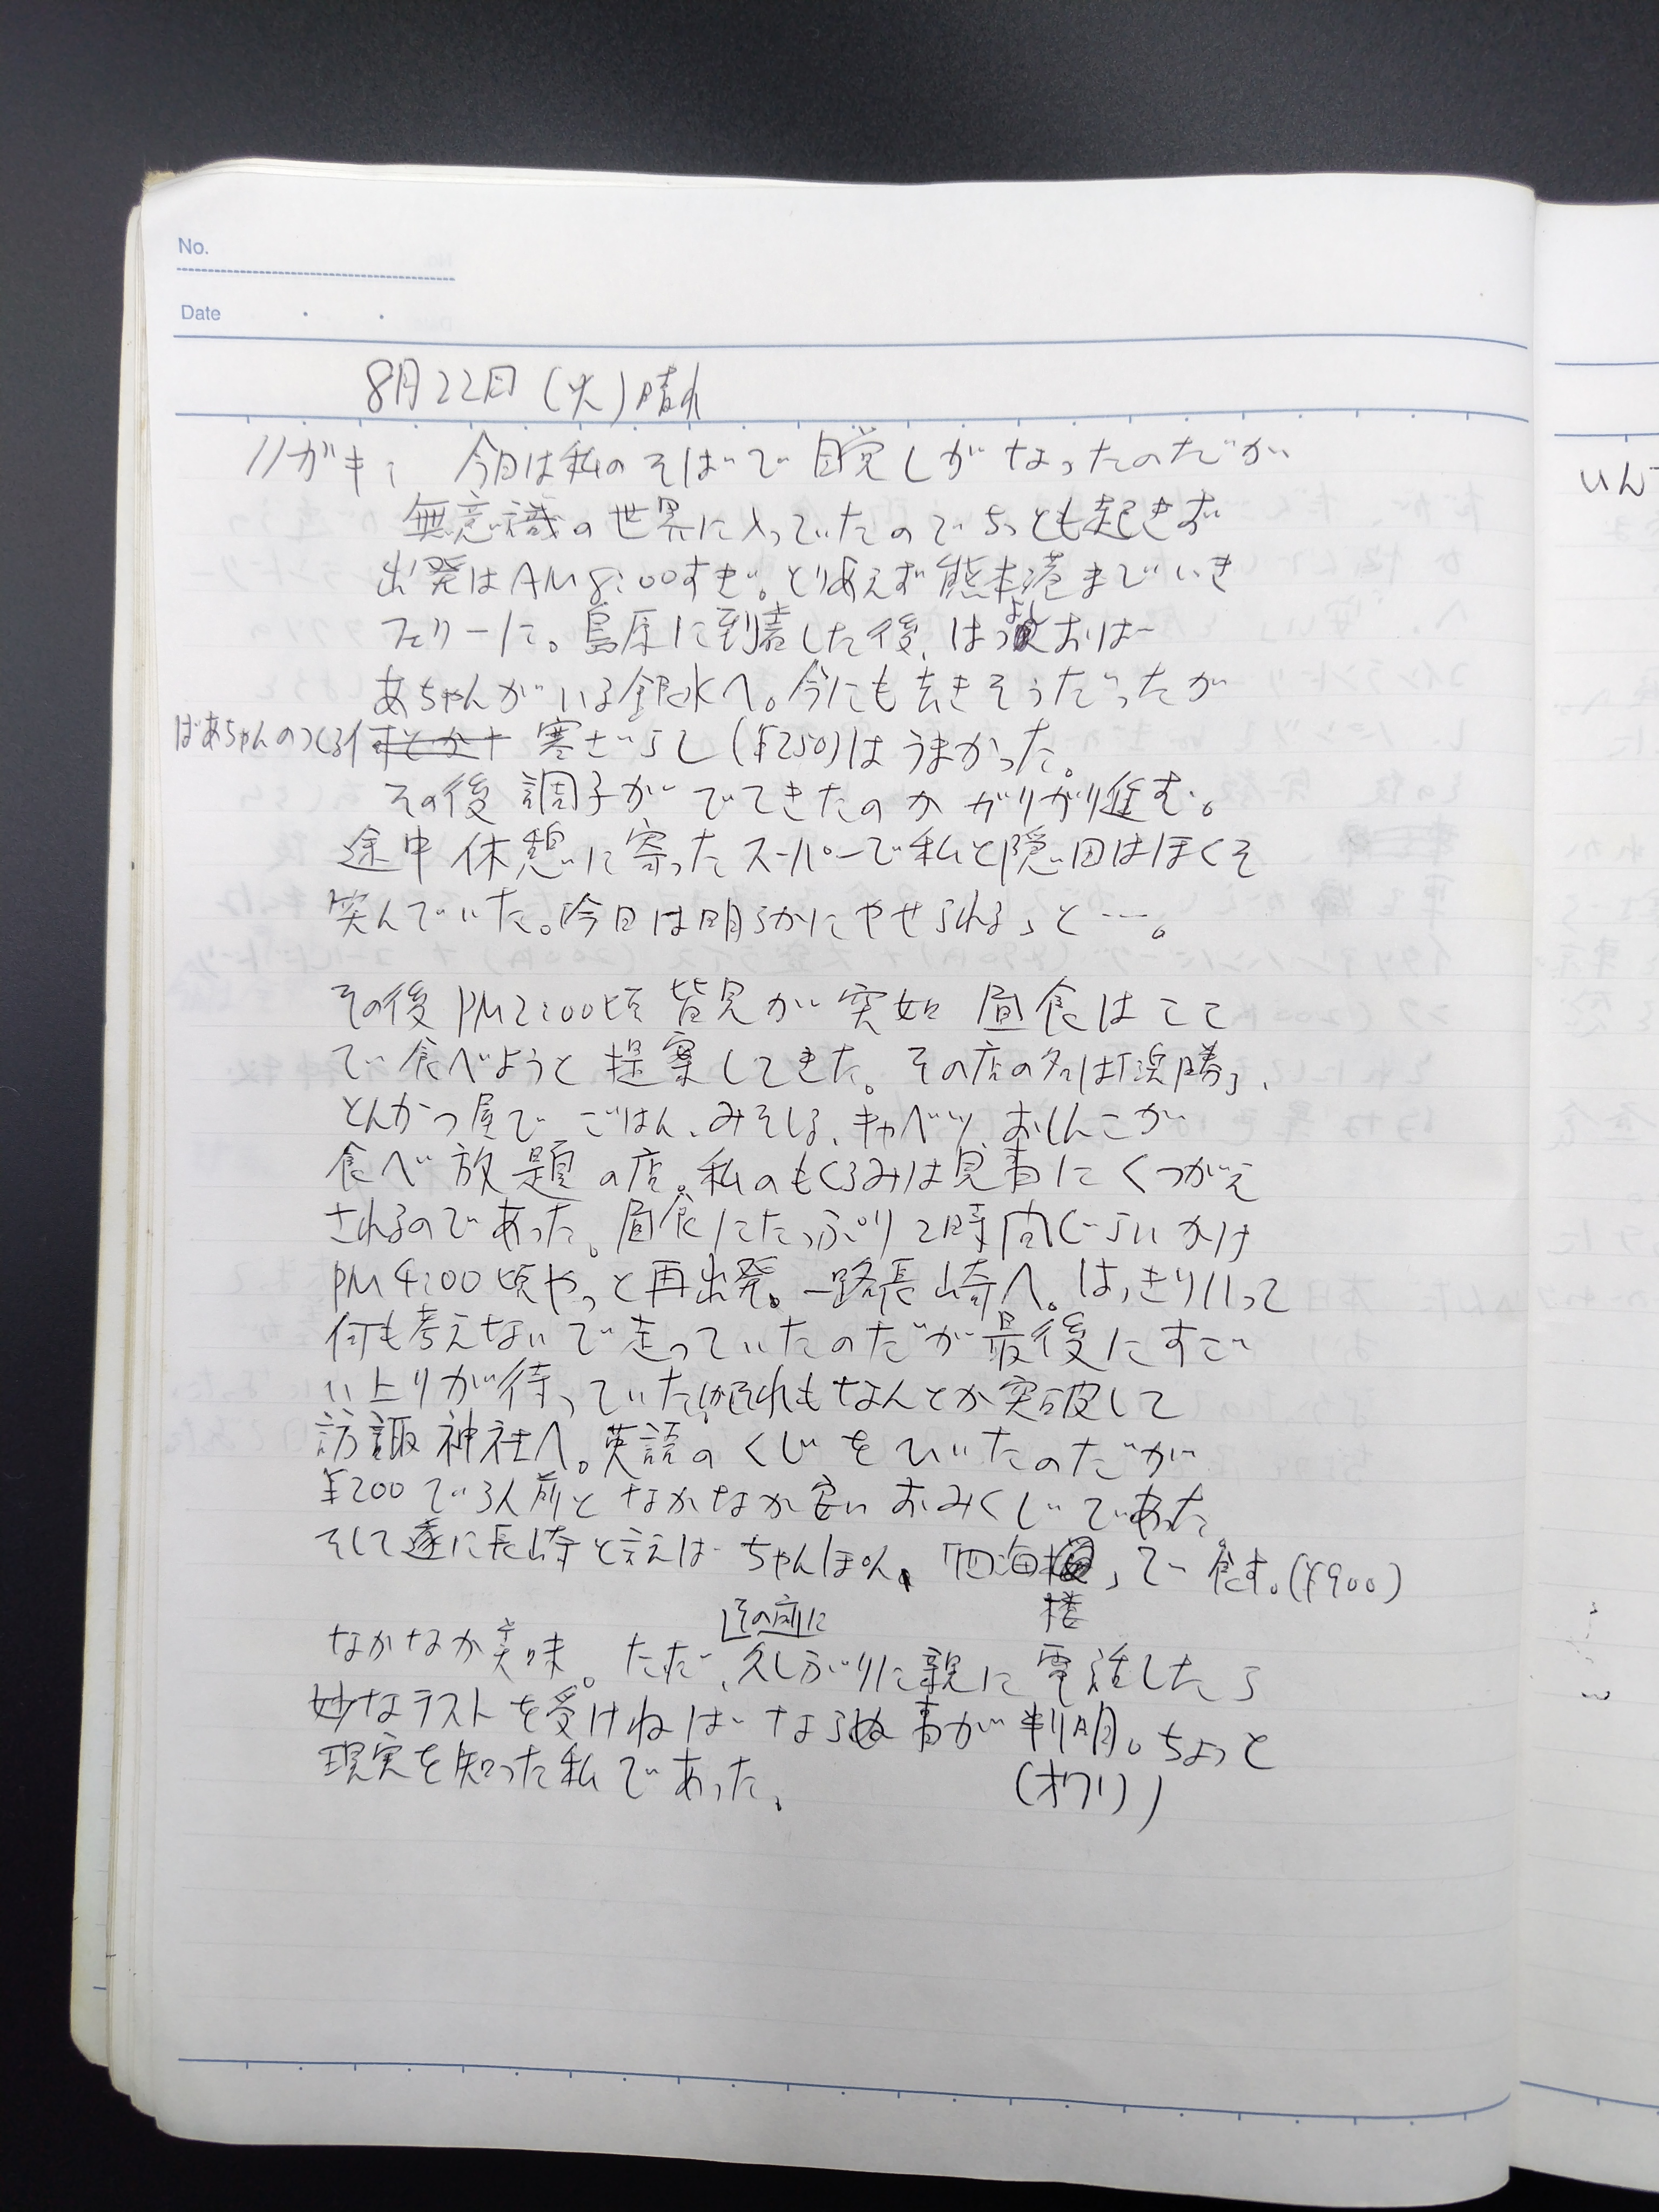 No.
Date
8月22日(火)晴れ
ノガキ: 今日は私のそばで目覚しがなったのだが
無意識の世界に入っていたのでちっとも起きず
出発はAM8:00すぎ。とりあえず熊本港までいき
フェリーに。島原に到着した後、はつよおばー
あちゃんがいる銀水へ。今にも去きそうだったが
ばあちゃんのつくる 寒ざらし(¥250)はうまかった。
その後調子がでてきたのかガリガリ進む。
途中休憩に寄ったスーパーで私と隠田はほくそ
笑んでいた。「今日は明らかにやせられる」と…。
その後PM2:00頃 皆見が突如 昼食はここ
で食べようと提案してきた。その店の名は「浜勝」、
とんかつ屋で ごはん、みそしる、キャベツ、おしんこが
食べ放題の店。私のもくろみは見事にくつがえ
されるのであった。昼食にたっぷり2時間ぐらいかけ
PM4:00頃やっと再出発。一路長崎へ。はっきりいって
何も考えないで走っていたのだが最後にすご
い上りが待っていた。がそれもなんとか突破して
訪諏神社へ。英語のくじをひいたのだが
¥200で3人前となかなか良いおみくじであった。
そして遂に長崎と言えばちゃんぽん。「四海 」で食す。(¥900)
楼
その前に
なかなか美味。ただ、久しぶりに親に電話したら
妙なテストを受けねばならぬ事が判明。ちょっと
現実を知った私であった。
(オワリ)
いんで